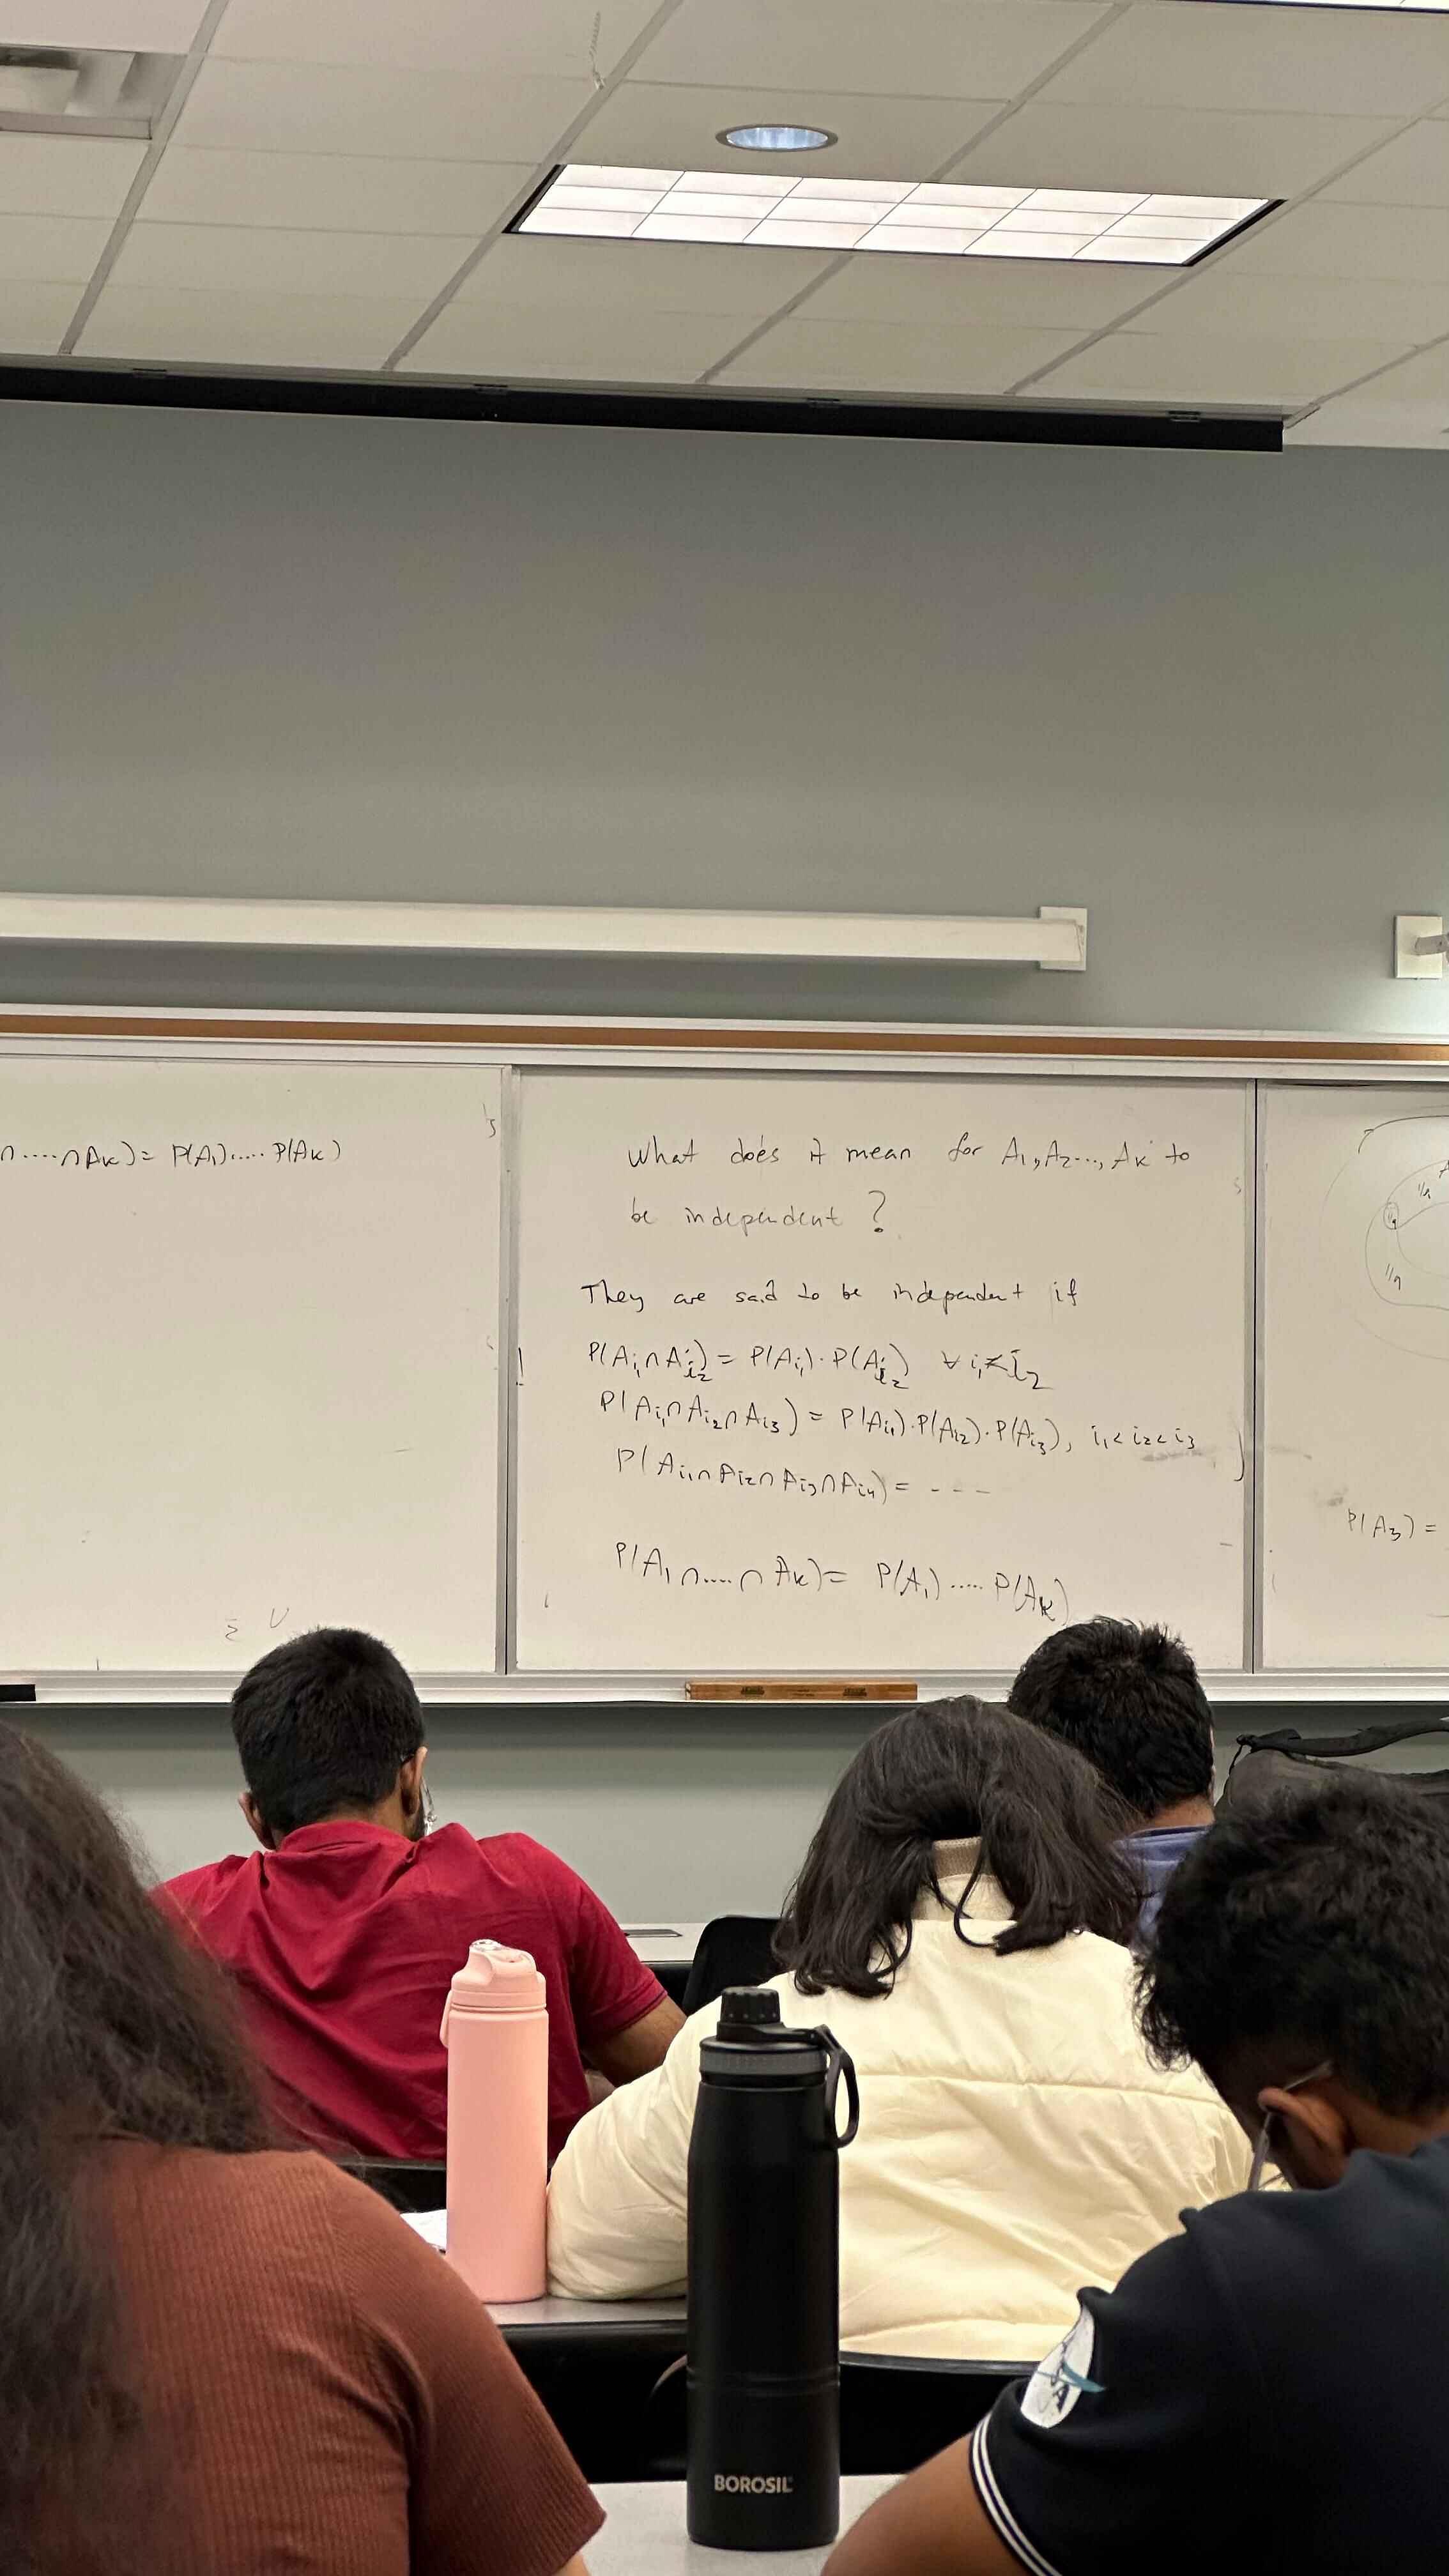 ∩ ..... ∩ Aₖ) = P(A₁)..... P(Aₖ)
What does it mean for A₁, A₂..., Aₖ to
be independent ?
They are said to be independent if
P(Aᵢ₁ ∩ Aᵢ₂) = P(Aᵢ₁) · P(Aᵢ₂) ∀ i₁ < i₂
P(Aᵢ₁ ∩ Aᵢ₂ ∩ Aᵢ₃) = P(Aᵢ₁) · P(Aᵢ₂) · P(Aᵢ₃), i₁ < i₂ < i₃
P(Aᵢ₁ ∩ Aᵢ₂ ∩ Aᵢ₃ ∩ Aᵢ₄) = - - -
P(A₁ ∩ ..... ∩ Aₖ) = P(A₁) ..... P(Aₖ)
1/9
P(A₃) =
BOROSIL